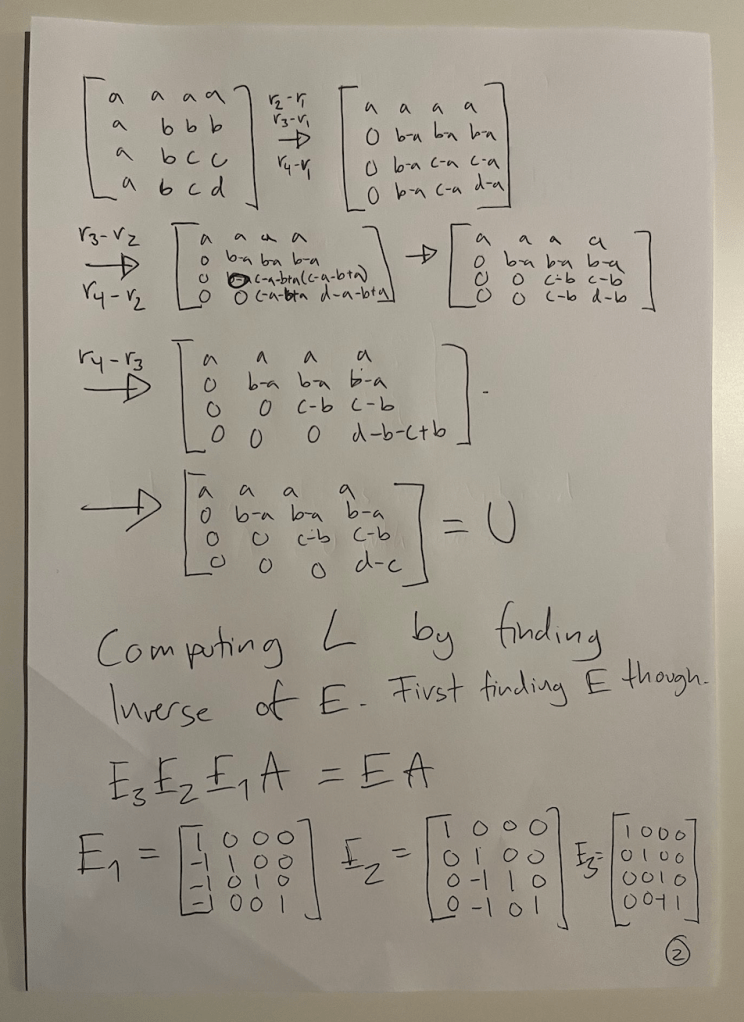 [a a a a; a b b b; a b c c; a b c d] r2-r1 r3-r1 → r4-r1 [a a a a; 0 b-a b-a b-a; 0 b-a c-a c-a; 0 b-a c-a d-a]
r3-r2 → r4-r2 [a a a a; 0 b-a b-a b-a; 0 0 c-a-b+a (c-a-b+a); 0 0 c-a-b+a d-a-b+a] → [a a a a; 0 b-a b-a b-a; 0 0 c-b c-b; 0 0 c-b d-b]
r4-r3 → [a a a a; 0 b-a b-a b-a; 0 0 c-b c-b; 0 0 0 d-b-c+b].
→ [a a a a; 0 b-a b-a b-a; 0 0 c-b c-b; 0 0 0 d-c] = U
Computing L by finding
Inverse of E. First finding E though.
E3 E2 E1 A = E A
E1 = [1 0 0 0; -1 1 0 0; -1 0 1 0; -1 0 0 1] E2 = [1 0 0 0; 0 1 0 0; 0 -1 1 0; 0 -1 0 1] E3 = [1 0 0 0; 0 1 0 0; 0 0 1 0; 0 0 -1 1]
2